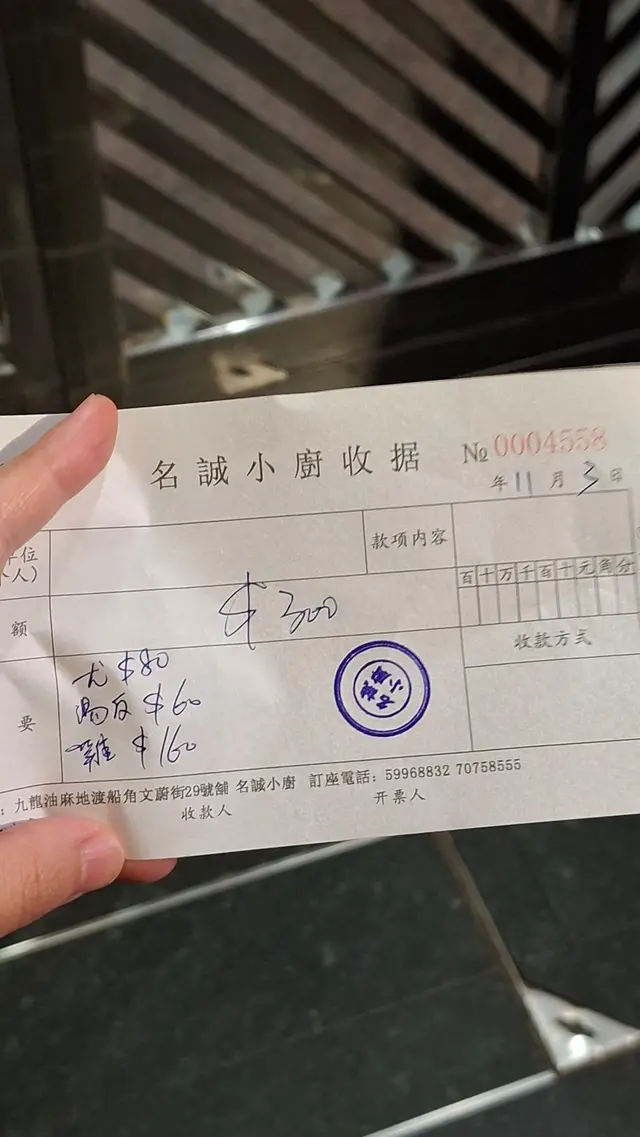 名誠小廚收据
№ 0004558
年 11 月 3 日
单位
个人)
款项内容
百十万千百十元角分
额
$300
收款方式
要
尤 $80
$60
雞 $160
名誠小廚
: 九龍油麻地渡船角文蔚街29號舖 名誠小廚 訂座電話: 59968832 70758555
收款人
开票人